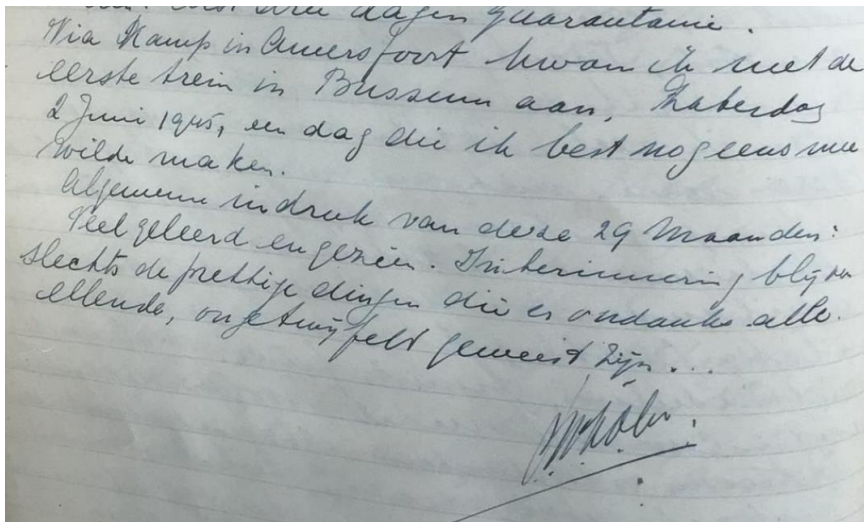 drie dagen quarantaine.
Via Kamp in Amersfoort kwam ik met de
eerste trein in Bussum aan, Zaterdag
2 Juni 1945, een dag die ik best nog eens mee
wilde maken.
Algemeene indruk van deze 29 Maanden:
Veel geleerd en gezien. In herinnering blijven
slechts de prettige dingen die er ondanks alle
ellende, ongetwijfelt geweest zijn...